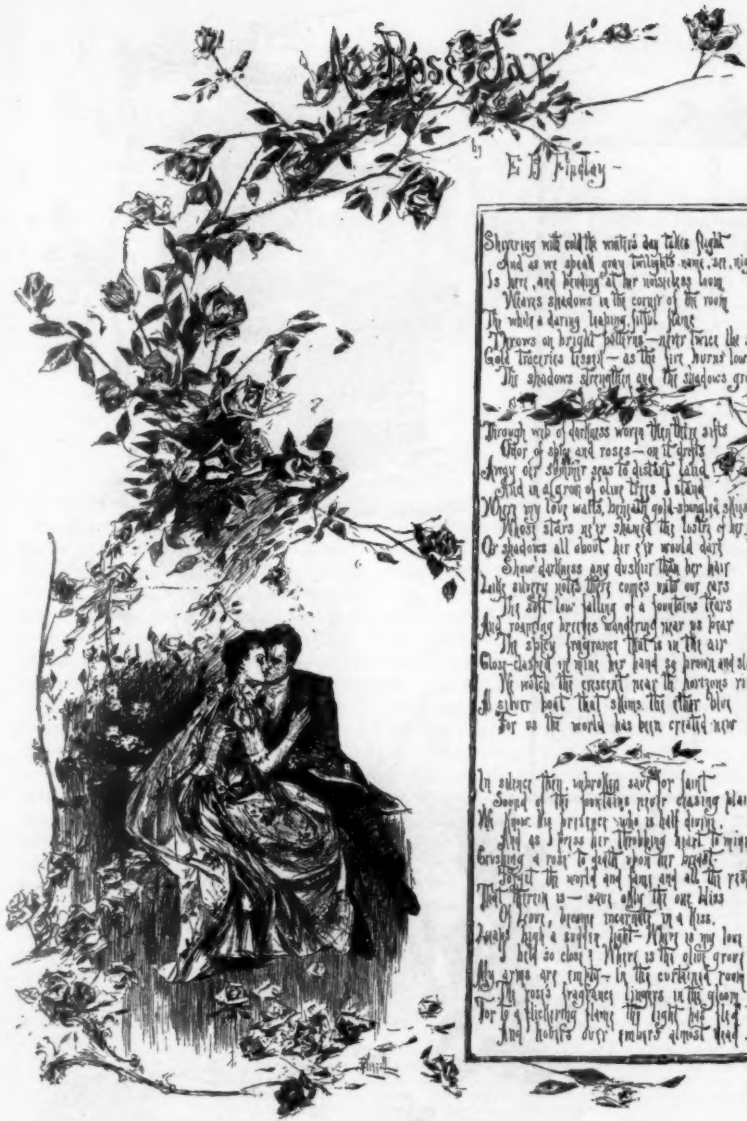 A Rose Jar
by
E B Findlay -
Shivering with cold the winter's day takes flight
And as we speak gray twilights name, see, nig
Is here, and bending at her noiseless loom
Weaves shadows in the corner of the room
The while a daring leaping, fitful flame
Throws on bright patterns — never twice the s
Gold traceries lessen — as the fire burns low
The shadows strengthen and the shadows gr
Through web of darkness woven then there sifts
Odor of spice and roses — on it drifts
Away oer summer seas to distant land
And in a grove of olive trees I stand
Where my love waits, beneath gold-spangled skies
Whose stars ne'er shamed the lustre of her
Or shadows all about her e'er would dare
Show darkness any duskier than her hair
Like silvery notes there comes unto our ears
The soft low falling of a fountains tears
And roaming breezes wandering near us bear
The spicy fragrance that is in the air
Close-clasped in mine her hand so brown and sl
We watch the crescent near the horizons ri
A silver boat that skims the ether blue
For us the world has been created new
In silence then, unbroken save for faint
Sound of the fountains never ceasing plai
We know his presence who is half divine
And as I press her throbbing heart to mine
Crushing a rose to death upon her breast
Forget the world and fame and all the res
That therein is — save only the one bliss
Of Love, become incarnate in a kiss.
Leaps high a sudden light — Where is my love
I held so close? Where is the olive grove
My arms are empty — in the curtained room
The rose's fragrance lingers in the gloom
For lo a flickering flame the light has fled
And hovers over embers almost dead